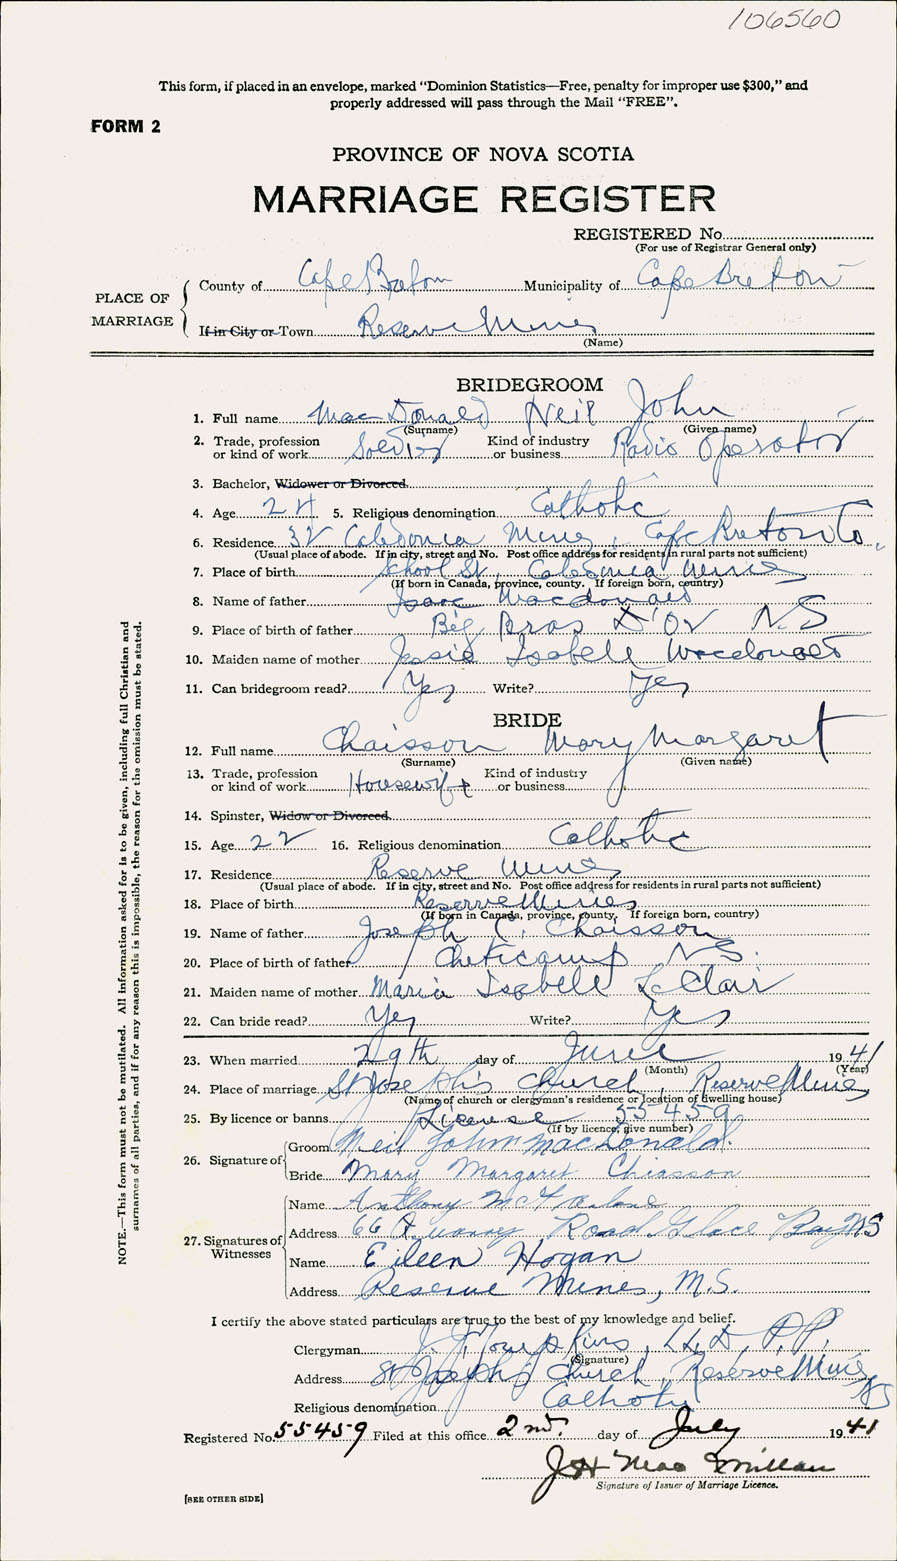 106560
This form, if placed in an envelope, marked “Dominion Statistics—Free, penalty for improper use $300,” and
properly addressed will pass through the Mail “FREE”.
FORM 2
PROVINCE OF NOVA SCOTIA
MARRIAGE REGISTER
REGISTERED No.
(For use of Registrar General only)
PLACE OF MARRIAGE
County of Cape Breton Municipality of Cape Breton
If in City or Town Reserve Mines
(Name)
BRIDEGROOM
1. Full name MacDonald Neil John
(Surname) (Given name)
2. Trade, profession or kind of work Soldier Kind of industry or business Radio Operator
3. Bachelor, Widower or Divorced
4. Age 24 5. Religious denomination Catholic
6. Residence Caledonia Mines, Cape Breton Co.
(Usual place of abode. If in city, street and No. Post office address for residents in rural parts not sufficient)
7. Place of birth School St, Caledonia Mines
(If born in Canada, province, county. If foreign born, country)
8. Name of father Isaac Macdonald
9. Place of birth of father Big Bras D'Or N S
10. Maiden name of mother Jessie Isabell Macdonald
11. Can bridegroom read? Yes Write? Yes
BRIDE
12. Full name Chaisson Mary Margaret
(Surname) (Given name)
13. Trade, profession or kind of work Housewife Kind of industry or business
14. Spinster, Widow or Divorced
15. Age 22 16. Religious denomination Catholic
17. Residence Reserve Mines
(Usual place of abode. If in city, street and No. Post office address for residents in rural parts not sufficient)
18. Place of birth Reserve Mines
(If born in Canada, province, county. If foreign born, country)
19. Name of father Joseph C. Chaisson
20. Place of birth of father Cheticamp N S.
21. Maiden name of mother Maria Isabell LeClair
22. Can bride read? Yes Write? Yes
23. When married 29th day of June 1941
(Month) (Year)
24. Place of marriage St Joseph's Church, Reserve Mines
(Name of church or clergyman's residence or location of dwelling house)
25. By licence or banns License 55459
(If by licence, give number)
26. Signature of
Groom Neil John MacDonald.
Bride Mary Margaret Chiasson
27. Signatures of Witnesses
Name Anthony
Address 66 Road Glace Bay NS
Name Eileen Hogan
Address Reserve Mines, N.S.
I certify the above stated particulars are true to the best of my knowledge and belief.
Clergyman J. J. Tompkins, LL.D, P.P.
(Signature)
Address St Joseph's Church, Reserve Mines NS
Religious denomination Catholic
Registered No. 55459 Filed at this office 2nd. day of July 1941
J H MacMillan
Signature of Issuer of Marriage Licence.
[SEE OTHER SIDE]
NOTE.—This form must not be mutilated. All Information asked for is to be given, including full Christian and
surnames of all parties, and if for any reason this is impossible, the reason for the omission must be stated.